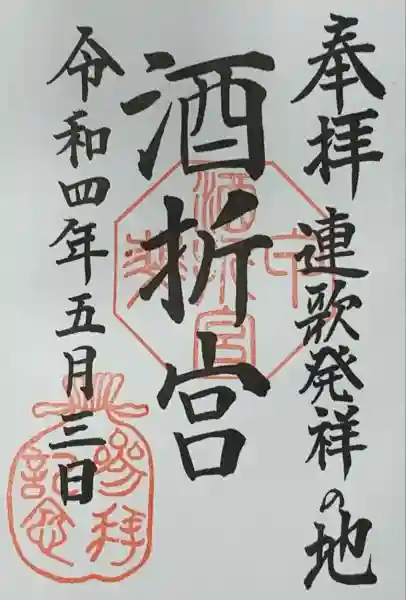 奉拝 連歌発祥の地
酒折宮
令和四年五月三日
酒折宮
参拝
記念